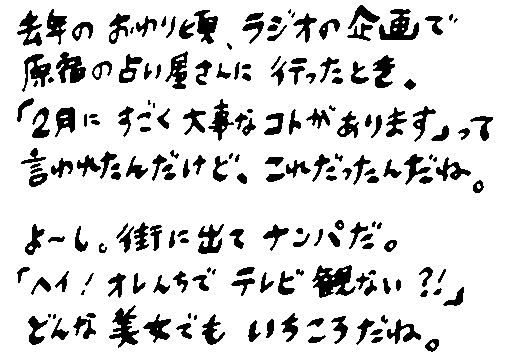 去年のおわり頃、ラジオの企画で
原宿の占い屋さんに行ったとき。
「2月にすごく大事なコトがあります」って
言われたんだけど、これだったんだね。
よ〜し。街に出てナンパだ。
「ヘイ!オレんちでテレビ観ない?!」
どんな美女でもいちころだね。